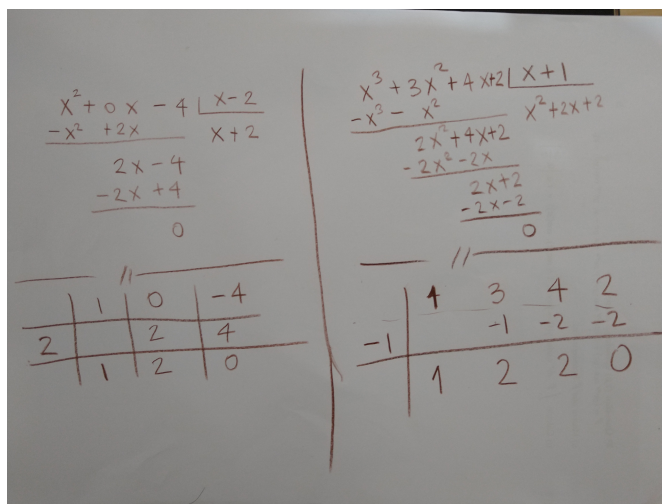 x² + 0x - 4 | x-2
-x² + 2x x+2
2x - 4
-2x + 4
0
//
1 0 -4
2 2 4
1 2 0
x³ + 3x² + 4x+2 | x+1
-x³ - x² x²+2x+2
2x²+4x+2
-2x²-2x
2x+2
-2x-2
0
//
1 3 4 2
-1 -1 -2 -2
1 2 2 0